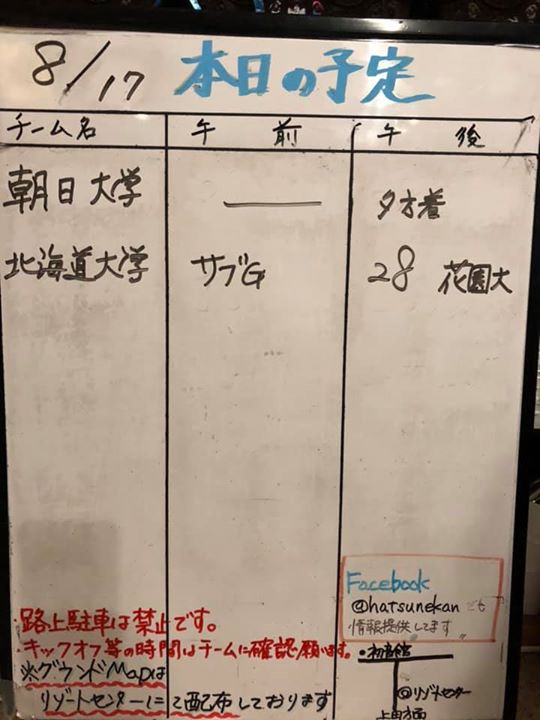 8/17 本日の予定
チーム名 午前 午後
朝日大学 — 夕方着
北海道大学 サブG 28 花園大
Facebook
@hatsunekan でも
情報提供してます
・路上駐車は禁止です。
・キックオフ等の時間はチームに確認願います。
※グランドMapは
リゾートセンターにて配布しております
・初音館
◎リゾートセンター
上田方面